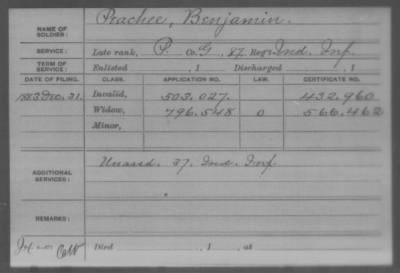 NAME OF SOLDIER: Peachee, Benjamin.
SERVICE: Late rank, P. Co. G, 87 Reg't Ind. Inf.
TERM OF SERVICE: Enlisted , 1 Discharged , 1
DATE OF FILING. CLASS. APPLICATION NO. LAW. CERTIFICATE NO.
1883 Dec. 31. Invalid, 503.027. 432.960
Widow, 796.548 0 566.462
Minor,
ADDITIONAL SERVICES: Unassd. 37. Ind. Inf
REMARKS:
Died , 1 , at